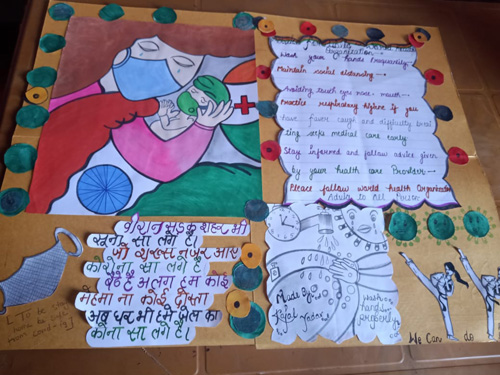 Wash your hands frequently
Maintain social distancing
Avoiding touch eyes nose mouth
Practice respiratory hygiene if you
have fever cough and difficulty breat
hing seek medical care early
Stay informed and follow advice given
by your health care Provider
Please follow world health Organization
Advise to All Person
वीरान सड़क शहर भी
सूना सा लगे है।
जो शख्स नज़र आए
कोरोना सा लगे है
बैठे है अलग हम कोई
मेहमा ना कोई दोस्ता
अब घर भी हमे जेल का
कोना सा लगे है।
Made By
Yadav
hands
properly
To be
We Can do